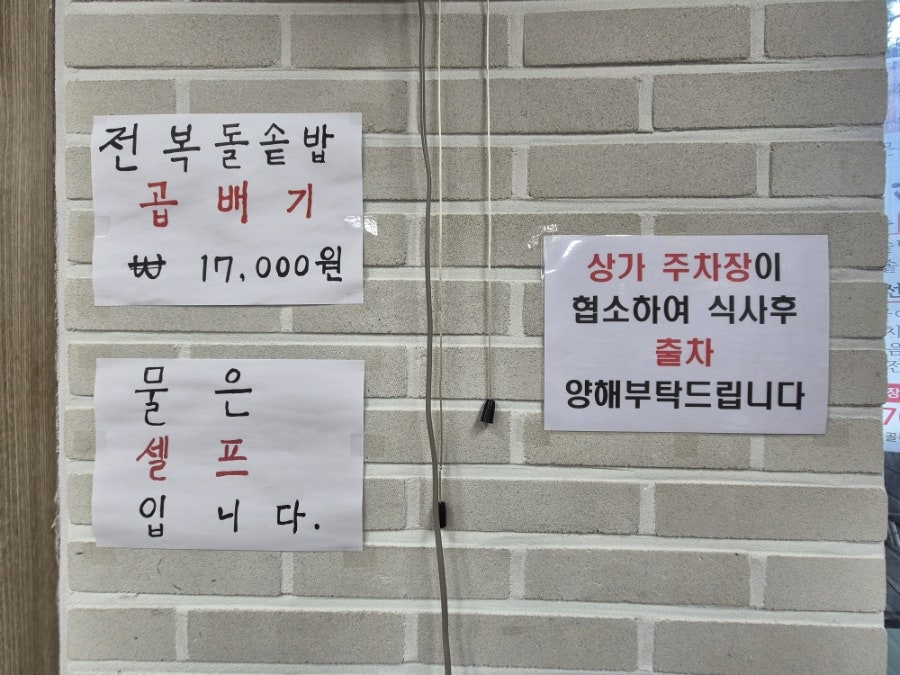 전복돌솥밥
곱배기
₩ 17,000원
물은
셀프
입니다.
상가 주차장이
협소하여 식사후
출차
양해부탁드립니다